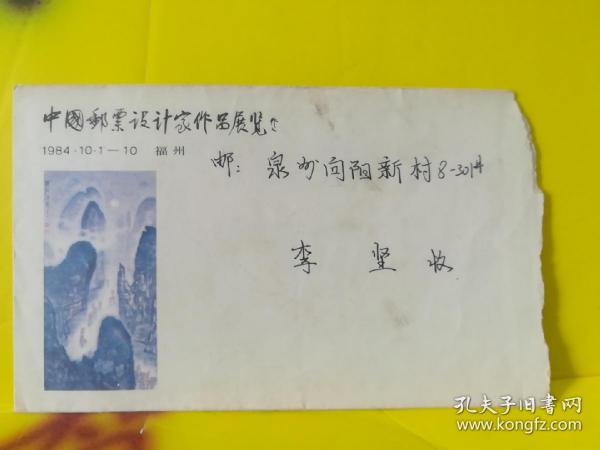 中國郵票设计家作品展览
1984·10·1—10 福州
邮：泉州向阳新村8-301#
李坚收
孔夫子旧书网
www.kongfz.com